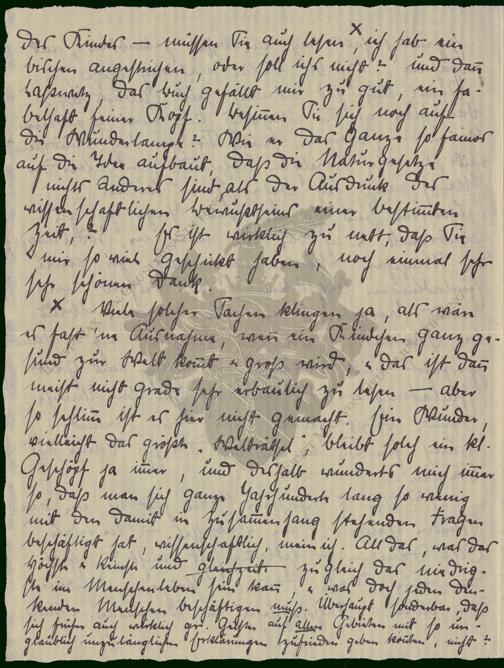 des Kindes — müssen Sie auch lesen ˣ, ich hab ein
bischen angestrichen, oder soll ichs nicht? und dañ
Laßwitz, das Buch gefällt mir zu gut, ein fa-
belhaft feiner Kopf. Besiñen Sie sich noch auf
die Wunderlampe? Wie er das Ganze so famos
auf die Idee aufbaut, daß die Naturgesetze
nichts Anderes sind, als der Ausdruck des
wissenschaftlichen Bewußtseins einer bestim̄ten
Zeit, ? Es ist wirklich zu nett, daß Sie
mir so viel geschickt haben, noch einmal sehr
sehr schönen Dank.
x Viele solcher Sachen klingen ja, als wärs
es fast 'ne Ausnahme, weñ ein Kindchen ganz ge-
sund zur Welt kom̄t u groß wird, u das ist dañ
meist nicht grade sehr erbaulich zu lesen — aber
so schlim̄ ist es hier nicht gemacht. Ein Wunder,
vielleicht das größte „Welträtsel", bleibt solch ein kl.
Geschöpf ja im̄er, und deshalb wunderts mich im̄er
so, daß man sich ganze Jahrhunderte lang so wenig
mit den damit in Zusam̄enhang stehenden Fragen
beschäftigt hat, wissenschaftlich, mein ich. All das, was das
Höchste u Feinste und gleichzeit zugleich das niedrig-
ste im Menschenleben sein kañ u was doch jeden den-
kenden Menschen beschäftigen muß. Überhaupt sonderbar, daß
sich früher auch wirklich gr. Geister auf allen Gebieten mit so un-
glaublich unzulänglichen Erklärungen zufrieden geben koñten, nicht?